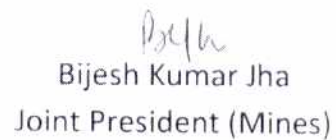 Bijesh Kumar Jha
Joint President (Mines)